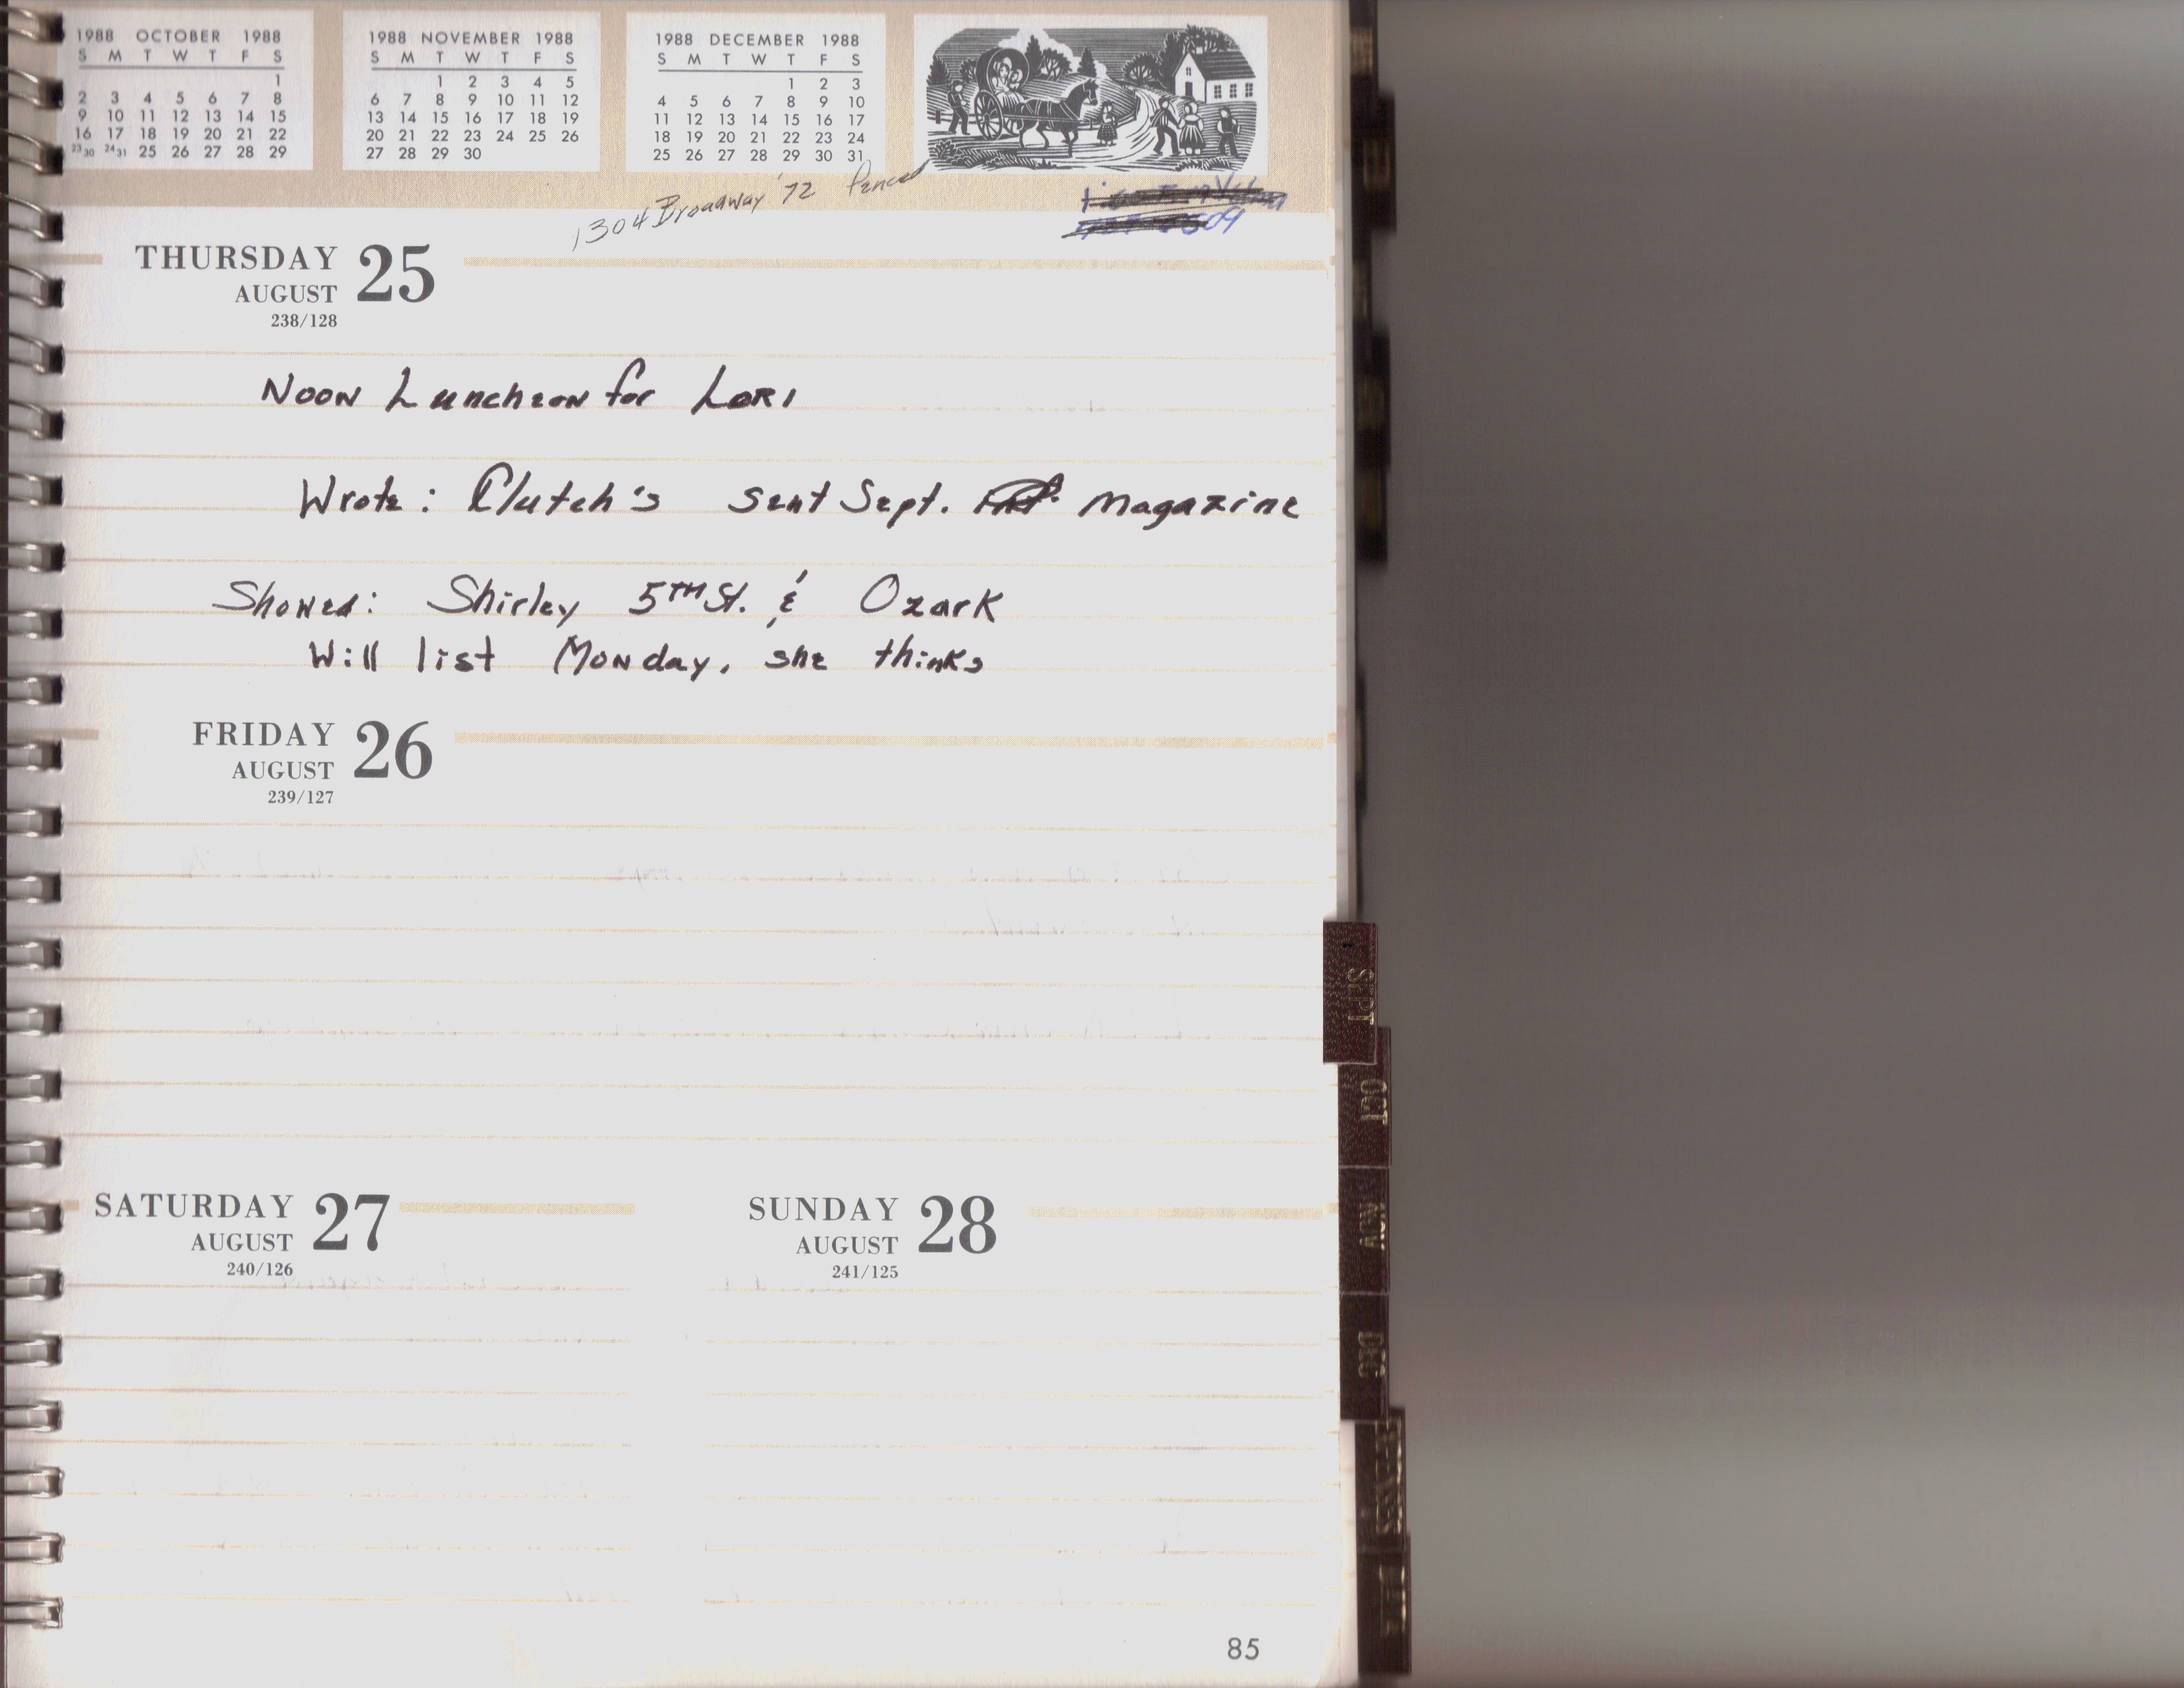 1988 OCTOBER 1988
S M T W T F S
1
2 3 4 5 6 7 8
9 10 11 12 13 14 15
16 17 18 19 20 21 22
23 30 24 31 25 26 27 28 29
1988 NOVEMBER 1988
S M T W T F S
1 2 3 4 5
6 7 8 9 10 11 12
13 14 15 16 17 18 19
20 21 22 23 24 25 26
27 28 29 30
1988 DECEMBER 1988
S M T W T F S
1 2 3
4 5 6 7 8 9 10
11 12 13 14 15 16 17
18 19 20 21 22 23 24
25 26 27 28 29 30 31
1304 Broadway '72
THURSDAY 25
AUGUST
238/128
Noon Luncheon for Lori
Wrote: Clutch's sent Sept. Magazine
Showed: Shirley 5TH St. & Ozark
Will list Monday, she thinks
FRIDAY 26
AUGUST
239/127
SATURDAY 27
AUGUST
240/126
SUNDAY 28
AUGUST
241/125
SEPT
OCT
NOV
DEC
85